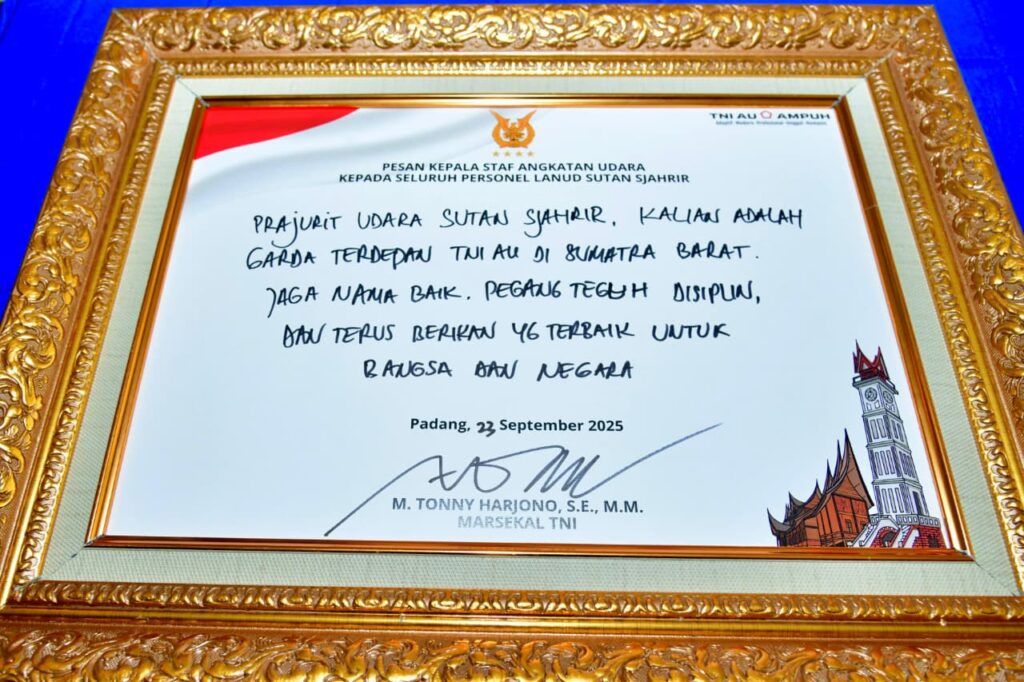 TNI AU AMPUH
PESAN KEPALA STAF ANGKATAN UDARA
KEPADA SELURUH PERSONEL LANUD SUTAN SJAHRIR
PRAJURIT UDARA SUTAN SJAHRIR, KALIAN ADALAH
GARDA TERDEPAN TNI AU DI SUMATRA BARAT.
JAGA NAMA BAIK, PEGANG TEGUH DISIPLIN,
DAN TERUS BERIKAN YG TERBAIK UNTUK
BANGSA DAN NEGARA
Padang, 23 September 2025
M. TONNY HARJONO, S.E., M.M.
MARSEKAL TNI